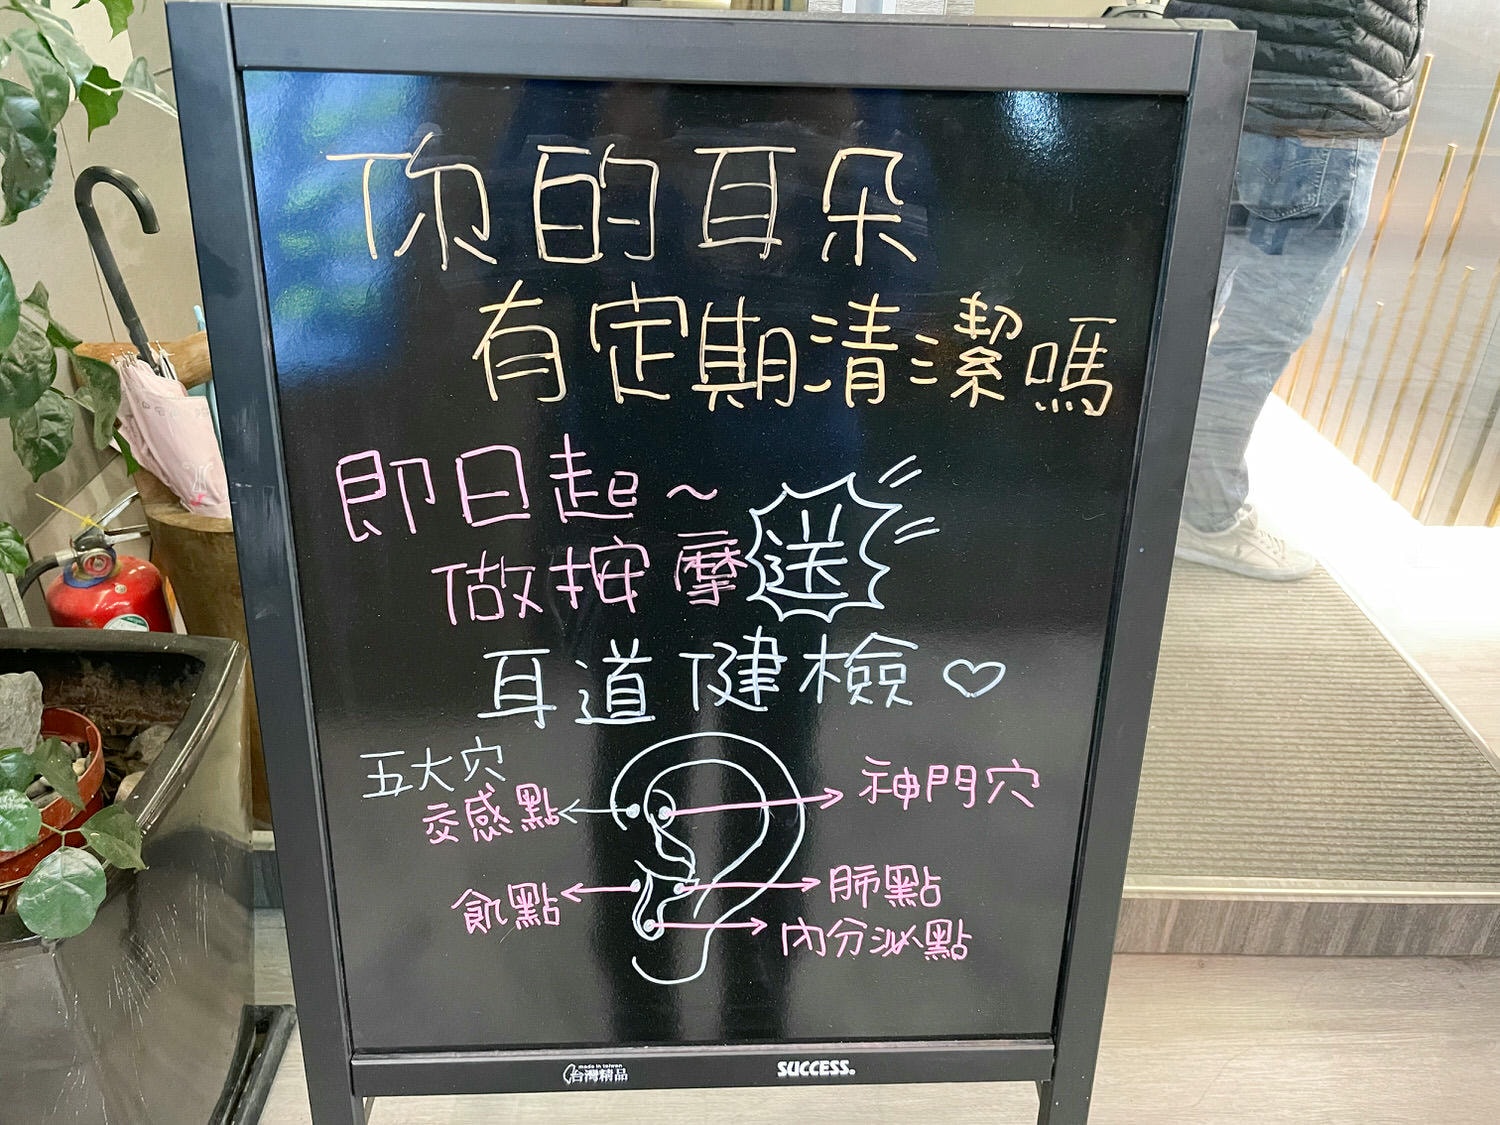 你的耳朵
有定期清潔嗎
即日起~
做按摩送
耳道健檢♡
五大穴
交感點
神門穴
飢點
肺點
內分泌點
made in taiwan
台灣精品
SUCCESS.